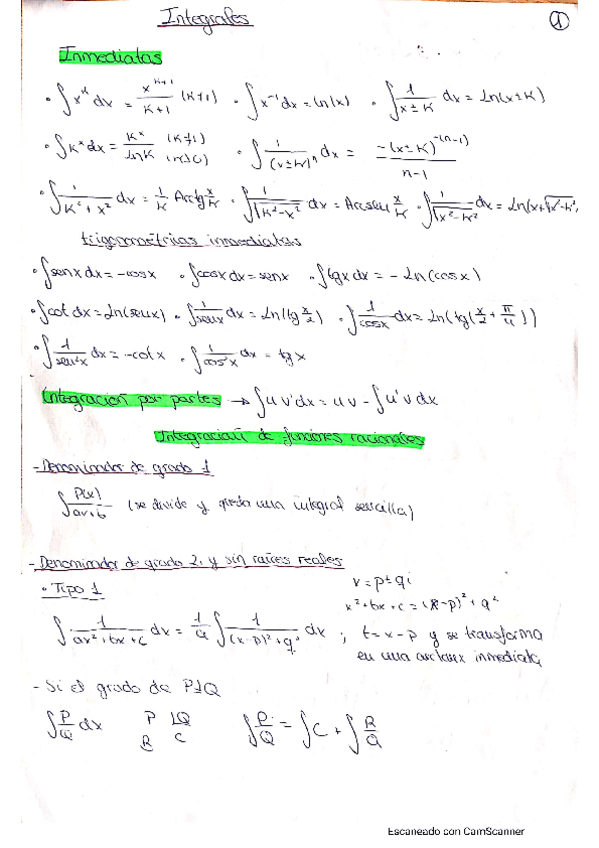 Integrales
1
Inmediatas
• ∫ x^K dx = x^(K+1) / K+1 (K≠1) • ∫ x^-1 dx = ln(x) • ∫ 1/(x±K) dx = Ln(x±K)
• ∫ K^x dx = K^x / LnK (K≠1) (K>0) • ∫ 1/(x±K)^n dx = -(x±K)^-(n-1) / n-1
• ∫ 1/(K²+x²) dx = 1/K Arctg x/K • ∫ 1/√(K²-x²) dx = Arcsen x/K • ∫ 1/√(x²-K²) dx = Ln(x+√x²-K²)
trigonométricas inmediatas
• ∫ senx dx = -cosx • ∫ cosx dx = senx • ∫ tgx dx = - Ln(cosx)
• ∫ cot dx = Ln(senx) • ∫ 1/senx dx = Ln(tg x/2) • ∫ 1/cosx dx = Ln(tg(x/2 + π/4))
• ∫ 1/sen²x dx = -cotx • ∫ 1/cos²x dx = tgx
Integración por partes → ∫ u v' dx = uv - ∫ u' v dx
Integración de funciones racionales
- Denominador de grado 1
∫ P(x)/(ax+b) (se divide y queda una integral sencilla)
- Denominador de grado 2, y sin raíces reales
• Tipo 1
r = p±qi
x²+bx+c = (x-p)²+q²
∫ 1/(ax²+bx+c) dx = 1/a ∫ 1/((x-p)²+q²) dx ; t=x-p y se transforma
en una inmediata
- Si el grado de P≥Q
∫ P/Q dx P ⌊Q R C ∫ P/Q = ∫ C + ∫ R/Q
Escaneado con CamScanner